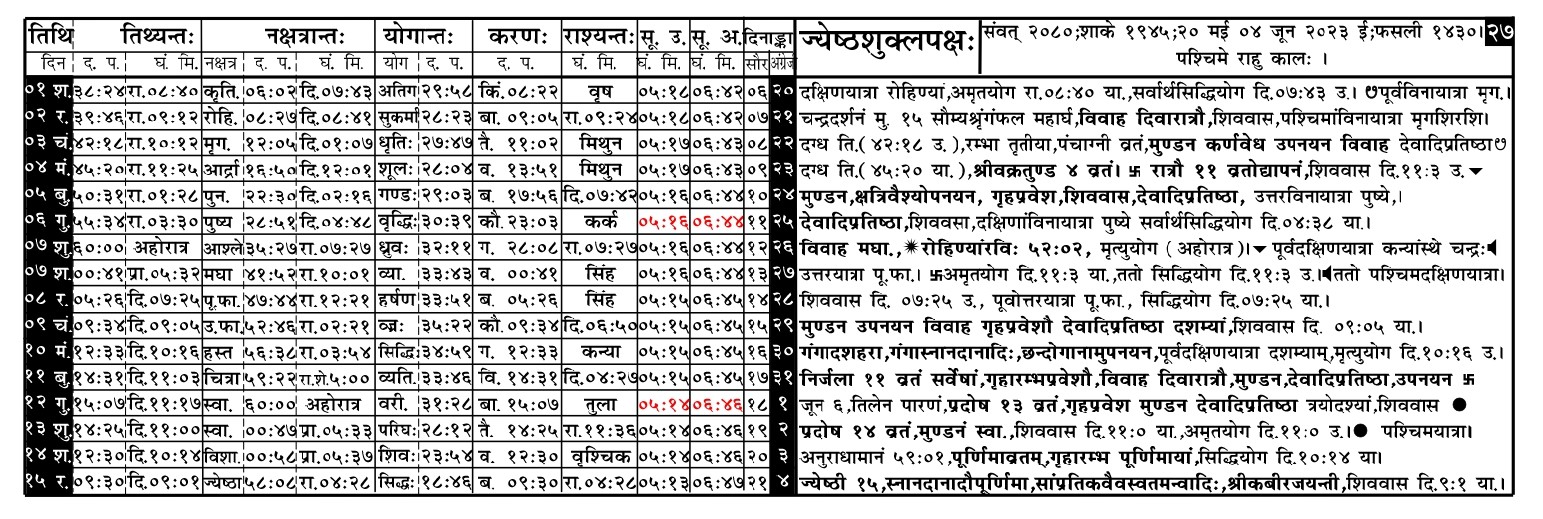 तिथि तिथ्यन्तः नक्षत्रान्तः योगान्तः करणः राश्यन्तः सू. उ. सू. अ. दिनाङ्का ज्येष्ठशुक्लपक्षः संवत् २०८०;शाके १९४५;२० मई ०४ जून २०२३ ई;फसली १४३०। २७
दिन द. प. घं. मि. नक्षत्र द. प. घं. मि. योग द. प. द. प. घं. मि. घं. मि. घं. मि. सौर अंग्रेज पश्चिमे राहु कालः ।
०१ श. ३८:२४ रा.०८:४० कृति. ०६:०२ दि.०७:४३ अतिग २९:५८ किं.०८:२२ वृष ०५:१८ ०६:४२ ०६ २० दक्षिणयात्रा रोहिण्यां,अमृतयोग रा.०८:४० या.,सर्वार्थसिद्धियोग दि.०७:४३ उ। ७पूर्वविनायात्रा मृग.।
०२ र. ३९:४६ रा.०९:१२ रोहि. ०८:२७ दि.०८:४१ सुकर्मा २८:२३ बा. ०९:०५ रा.०९:२४ ०५:१८ ०६:४२ ०७ २१ चन्द्रदर्शनं मु. १५ सौम्यश्रृंगंफल महार्घ,विवाह दिवारात्रौ,शिववास,पश्चिमांविनायात्रा मृगशिरशि।
०३ चं. ४२:१८ रा.१०:१२ मृग. १२:०५ दि.०१:०७ धृतिः २७:४७ तै. ११:०२ मिथुन ०५:१७ ०६:४३ ०८ २२ दग्ध ति.( ४२:१८ उ. ),रम्भा तृतीया,पंचाग्नी व्रतं,मुण्डन कर्णवेध उपनयन विवाह देवादिप्रतिष्ठा७
०४ मं. ४५:२० रा.११:२५ आर्द्रा १६:५० दि.१२:०१ शूलः २८:०४ व. १३:५१ मिथुन ०५:१७ ०६:४३ ०९ २३ दग्ध ति.( ४५:२० या. ),श्रीवक्रतुण्ड ४ व्रतं। 卐 रात्रौ ११ व्रतोद्यापनं,शिववास दि.११:३ उ.▼
०५ बु. ५०:३१ रा.०१:२८ पुन. २२:३० दि.०२:१६ गण्डः २९:०३ ब. १७:५६ दि.०७:४२ ०५:१६ ०६:४४ १० २४ मुण्डन,क्षत्रिवैश्योपनयन, गृहप्रवेश,शिववास,देवादिप्रतिष्ठा, उत्तरविनायात्रा पुष्ये,।
०६ गु. ५५:३४ रा.०३:३० पुष्य २८:५१ दि.०४:४८ वृद्धिः ३०:३९ कौ.२३:०३ कर्क ०५:१६ ०६:४४ ११ २५ देवादिप्रतिष्ठा,शिववसा,दक्षिणांविनायात्रा पुष्ये सर्वार्थसिद्धियोग दि.०४:३८ या।
०७ शु. ६०:०० अहोरात्र आश्ले ३५:२७ रा.०७:२७ ध्रुवः ३२:११ ग. २८:०८ रा.०७:२७ ०५:१६ ०६:४४ १२ २६ विवाह मघा.,✷रोहिण्यांरविः ५२:०२, मृत्युयोग ( अहोरात्र )।▼ पूर्वदक्षिणयात्रा कन्यांस्थे चन्द्रः◀
०७ श. ००:४१ प्रा.०५:३२ मघा ४१:५२ रा.१०:०१ व्या. ३३:४३ व. ००:४१ सिंह ०५:१६ ०६:४४ १३ २७ उत्तरयात्रा पू.फा.। 卐अमृतयोग दि.११:३ या.,ततो सिद्धियोग दि.११:३ उ.।◀ततो पश्चिमदक्षिणयात्रा।
०८ र. ०५:२६ दि.०७:२५ पू.फा. ४७:४४ रा.१२:२१ हर्षण ३३:५१ ब. ०५:२६ सिंह ०५:१५ ०६:४५ १४ २८ शिववास दि. ०७:२५ उ., पूवोत्तरयात्रा पू.फा., सिद्धियोग दि.०७:२५ या.।
०९ चं. ०९:३४ दि.०९:०५ उ.फा. ५२:४६ रा.०२:२१ वज्रः ३५:२२ कौ.०९:३४ दि.०६:५० ०५:१५ ०६:४५ १५ २९ मुण्डन उपनयन विवाह गृहप्रवेशौ देवादिप्रतिष्ठा दशम्यां,शिववास दि. ०९:०५ या.।
१० मं. १२:३३ दि.१०:१६ हस्त ५६:३८ रा.०३:५४ सिद्धिः ३४:५९ ग. १२:३३ कन्या ०५:१५ ०६:४५ १६ ३० गंगादशहरा,गंगास्नानदानादिः,छन्दोगानामुपनयन,पूर्वदक्षिणयात्रा दशम्याम्,मृत्युयोग दि.१०:१६ उ.।
११ बु. १४:३१ दि.११:०३ चित्रा ५९:२२ रा.शे.५:०० व्यति. ३३:४६ वि. १४:३१ दि.०४:२७ ०५:१५ ०६:४५ १७ ३१ निर्जला ११ व्रतं सर्वेषां,गृहारम्भप्रवेशौ,विवाह दिवारात्रौ,मुण्डन,देवादिप्रतिष्ठा,उपनयन 卐
१२ गु. १५:०७ दि.११:१७ स्वा. ६०:०० अहोरात्र वरी. ३१:२८ बा. १५:०७ तुला ०५:१४ ०६:४६ १८ १ जून ६,तिलेन पारणं,प्रदोष १३ व्रतं,गृहप्रवेश मुण्डन देवादिप्रतिष्ठा त्रयोदश्यां,शिववास ●
१३ शु. १४:२५ दि.११:०० स्वा. ००:४७ प्रा.०५:३३ परिघः २८:१२ तै. १४:२५ रा.११:३६ ०५:१४ ०६:४६ १९ २ प्रदोष १४ व्रतं,मुण्डनं स्वा.,शिववास दि.११:० या.,अमृतयोग दि.११:० उ.।● पश्चिमयात्रा।
१४ श. १२:३० दि.१०:१४ विशा. ००:५८ प्रा.०५:३७ शिवः २३:५४ व. १२:३० वृश्चिक ०५:१४ ०६:४६ २० ३ अनुराधामानं ५९:०१,पूर्णिमाव्रतम्,गृहारम्भ पूर्णिमायां,सिद्धियोग दि.१०:१४ या।
१५ र. ०९:३० दि.०९:०१ ज्येष्ठा ५८:०८ रा.०४:२८ सिद्धः १८:४६ ब. ०९:३० रा.०४:२८ ०५:१३ ०६:४७ २१ ४ ज्येष्ठी १५,स्नानदानादौपूर्णिमा,सांप्रतिकवैवस्वतमन्वादिः,श्रीकबीरजयन्ती,शिववास दि.९:१ या.।